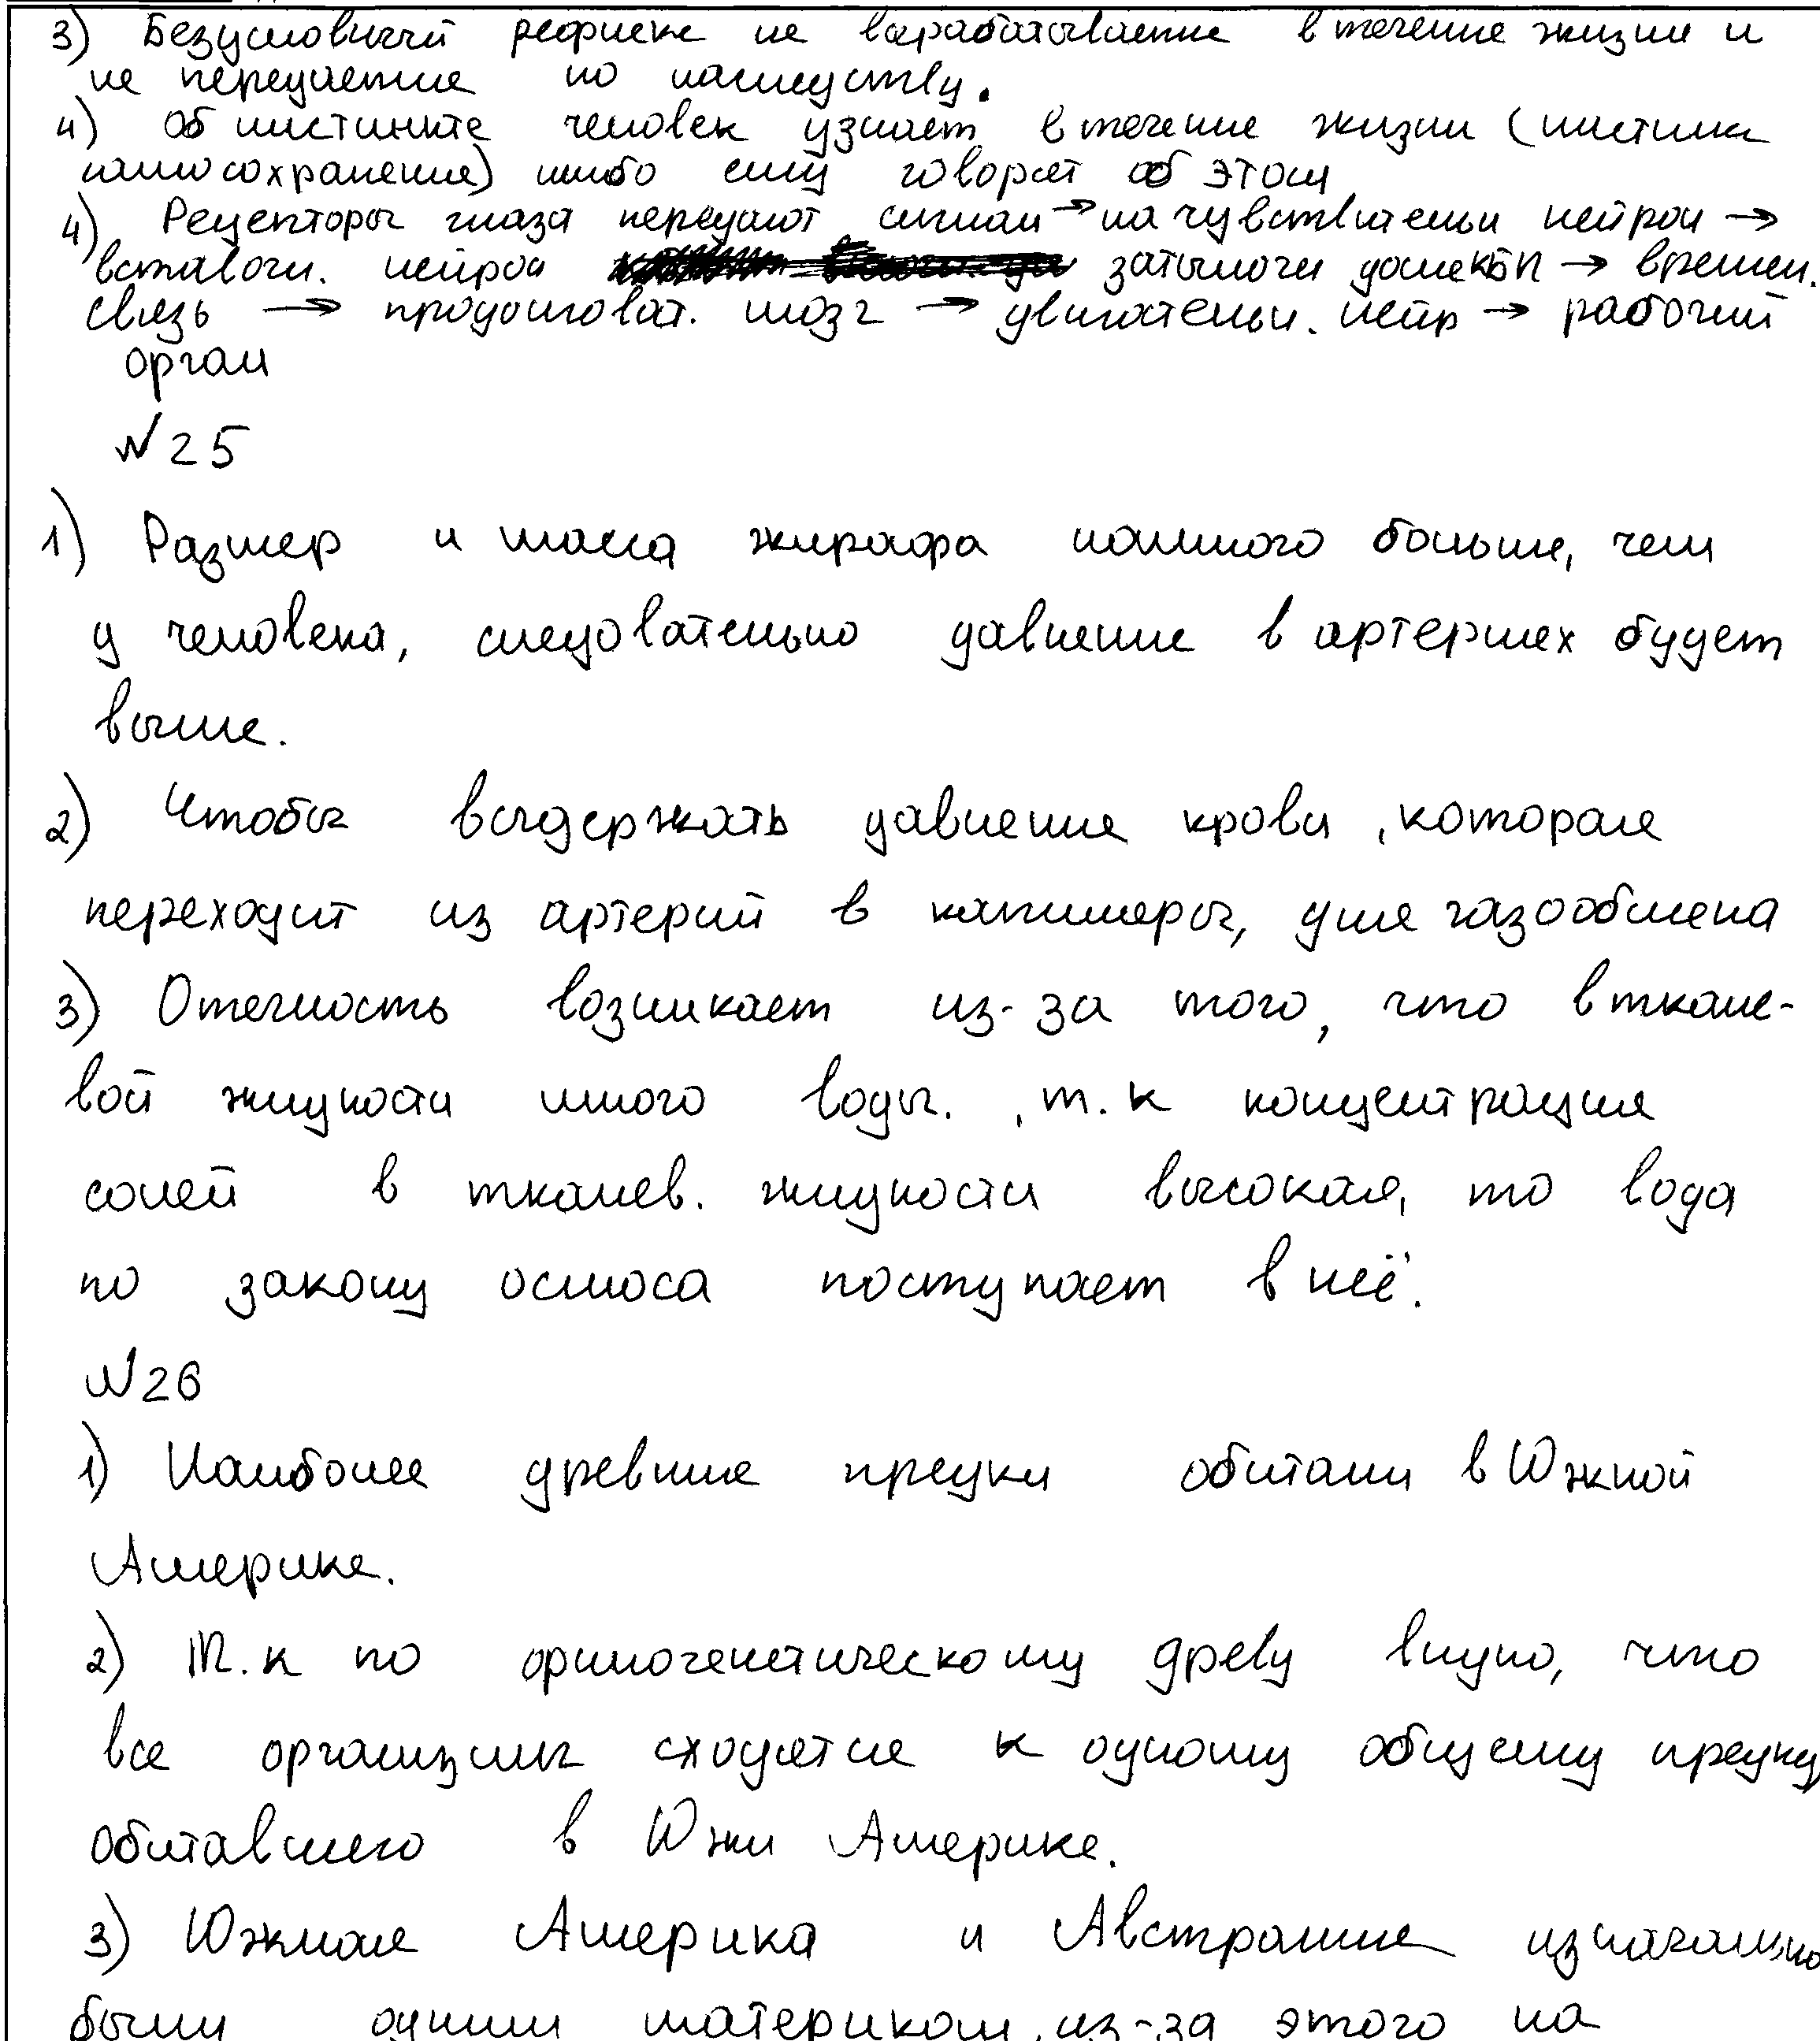 3) Безусловный рефлекс не вырабатывается в течение жизни и
не передается по наследству.
4) Об инстинкте человек узнает в течение жизни (инстинк
самосохранения) либо ему говорят об этом
4) Рецепторы глаза передают сигнал → на чувствительн нейрон →
вставочн. нейрон затылочн доля КБП → времен.
связь → продолговат. мозг → двигательн. нейр → рабочий
орган
№25
1) Размер и масса жирафа намного больше, чем
у человека, следовательно давление в артериях будет
выше.
2) Чтобы выдержать давление крови, которая
переходит из артерий в капилляры, для газообмена
3) Отечность возникает из-за того, что в ткане-
вой жидкости много воды. , т.к концентрация
солей в тканев. жидкости высокая, то вода
по закону осмоса поступает в неё.
№26
1) Наиболее древние предки обитали в Южной
Америке.
2) Т.к по филогенетическому древу видно, что
все организмы сходятся к одному общему предку
обитавшего в Южн Америке.
3) Южная Америка и Австралия изначально
были одним материком, из-за этого на